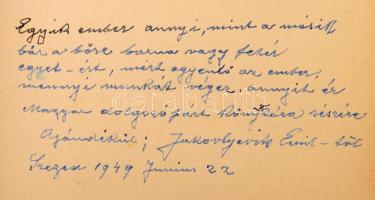 Egyik ember annyi, mint a másik
bár a bőre barna vagy fehér
egyet-ért, mert egyenlő az ember,
mennyi munkát végez, annyit ér
Magyar dolgozó párt könyvtára részére
Ajándékúl; Jakovlyevits Emil-től
Szeged 1949 Junius 22